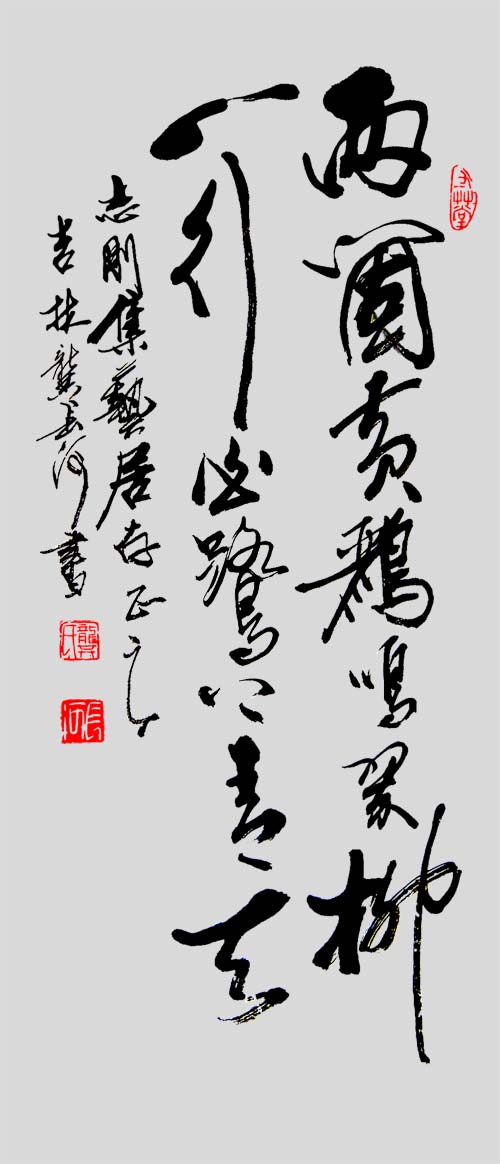 兩箇黄鸝鳴翠柳
一行白鷺上青天
志剛集藝居存正之
吉林龔長河書